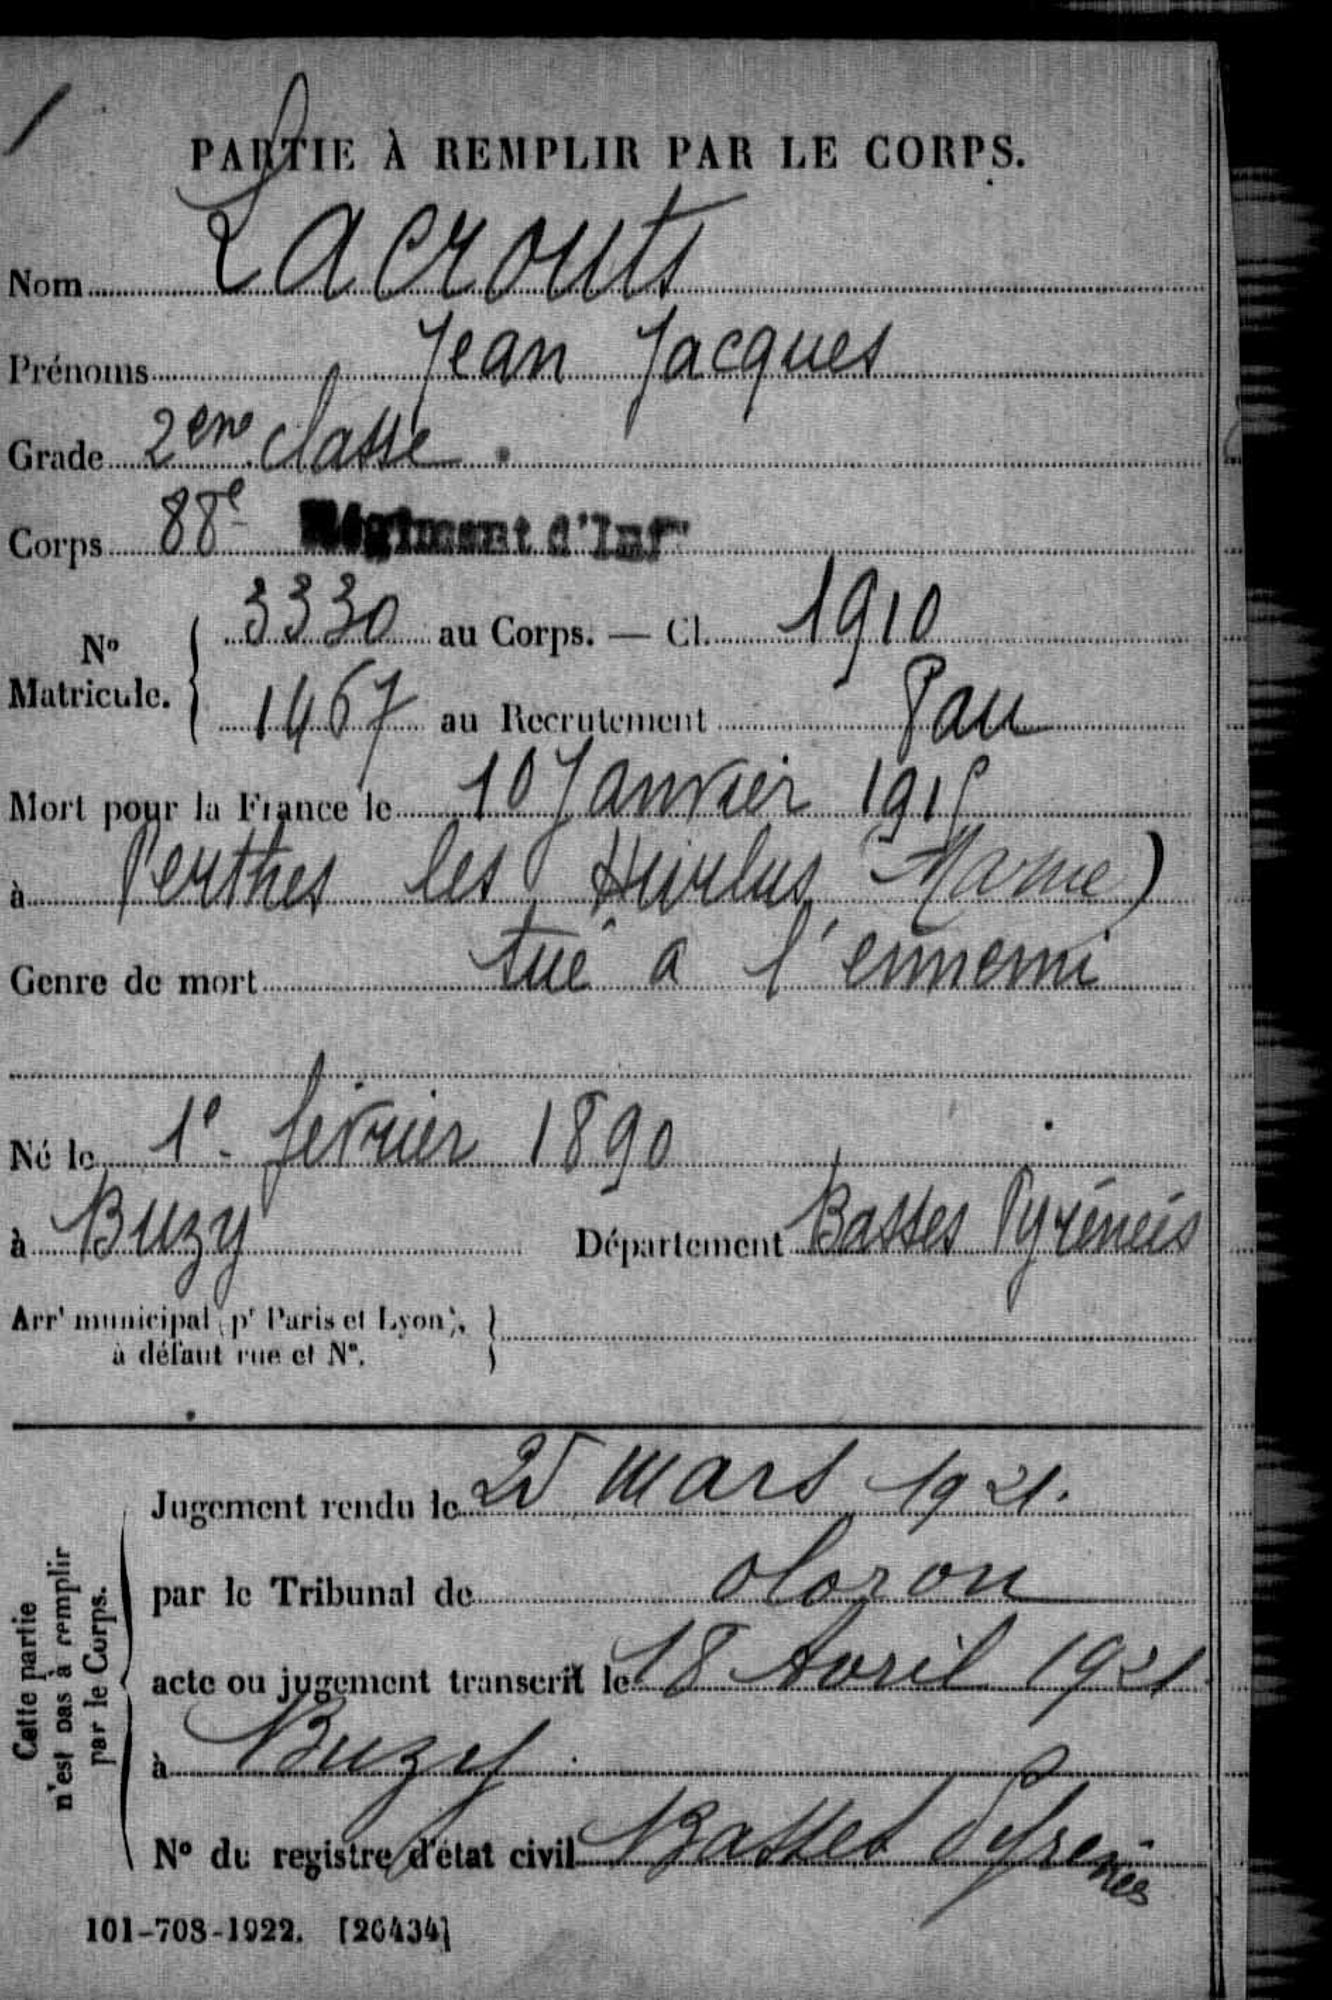 PARTIE À REMPLIR PAR LE CORPS.
Nom Lacrouts
Prénoms Jean Jacques
Grade 2eme classe.
Corps 88e Régiment d'Infie
No Matricule. { 3330 au Corps. — Cl. 1910
1467 au Recrutement Pau
Mort pour la France le 10 Janvier 1915
à Perthes les Hurlus (Marne)
Genre de mort tué à l'ennemi
Né le 1e février 1890
à Buzy Département Basses Pyrénées
Arrt municipal (pr Paris et Lyon), à défaut rue et No.
Cette partie n'est pas à remplir par le Corps.
Jugement rendu le 25 mars 1921.
par le Tribunal de Oloron
acte ou jugement transcrit le 18 Avril 1921
à Buzy
No du registre d'état civil Basses Pyrenées
101-708-1922. [26434]